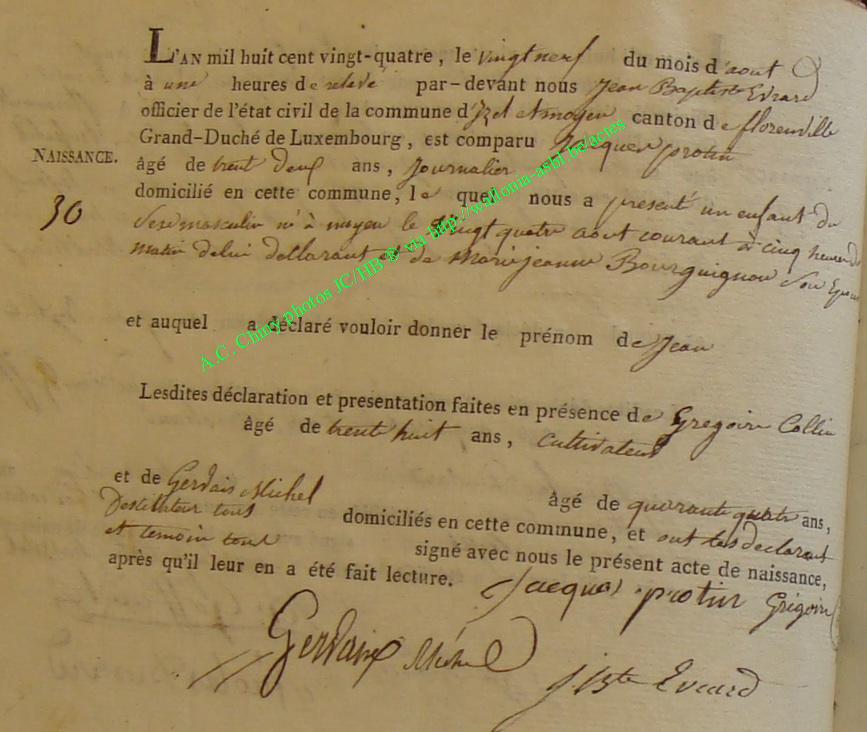 L'AN mil huit cent vingt-quatre, le vingt neuf du mois d'aout
à une heures de relevé par-devant nous Jean Baptiste Evrard
officier de l'état civil de la commune d'Izel et moyen canton de florenville
Grand-Duché de Luxembourg, est comparu Jacques protin
NAISSANCE.
âgé de trent deux ans, Journalier
30
domicilié en cette commune, le quel nous a presenté un enfant du
Sexe masculin né à moyen le vingt quatre aout courant à cinq heures du
matin de lui declarant et de Marie jeanne Bourguignon Son Epouse
et auquel a déclaré vouloir donner le prénom de Jean
Lesdites déclaration et presentation faites en présence de Gregoire Collin
âgé de trent huit ans, cultivateur
et de Gervais Michel âgé de quarante quatre ans,
Destilateur tous domiciliés en cette commune, et ont les declarant
et temoin tous signé avec nous le présent acte de naissance,
après qu'il leur en a été fait lecture.
Jacques protin Grégoire
Gervais Michel
J Bte Evrard
A.C. Chiny-photos JC/HB ® via http://wallonia-asbl.be/actes